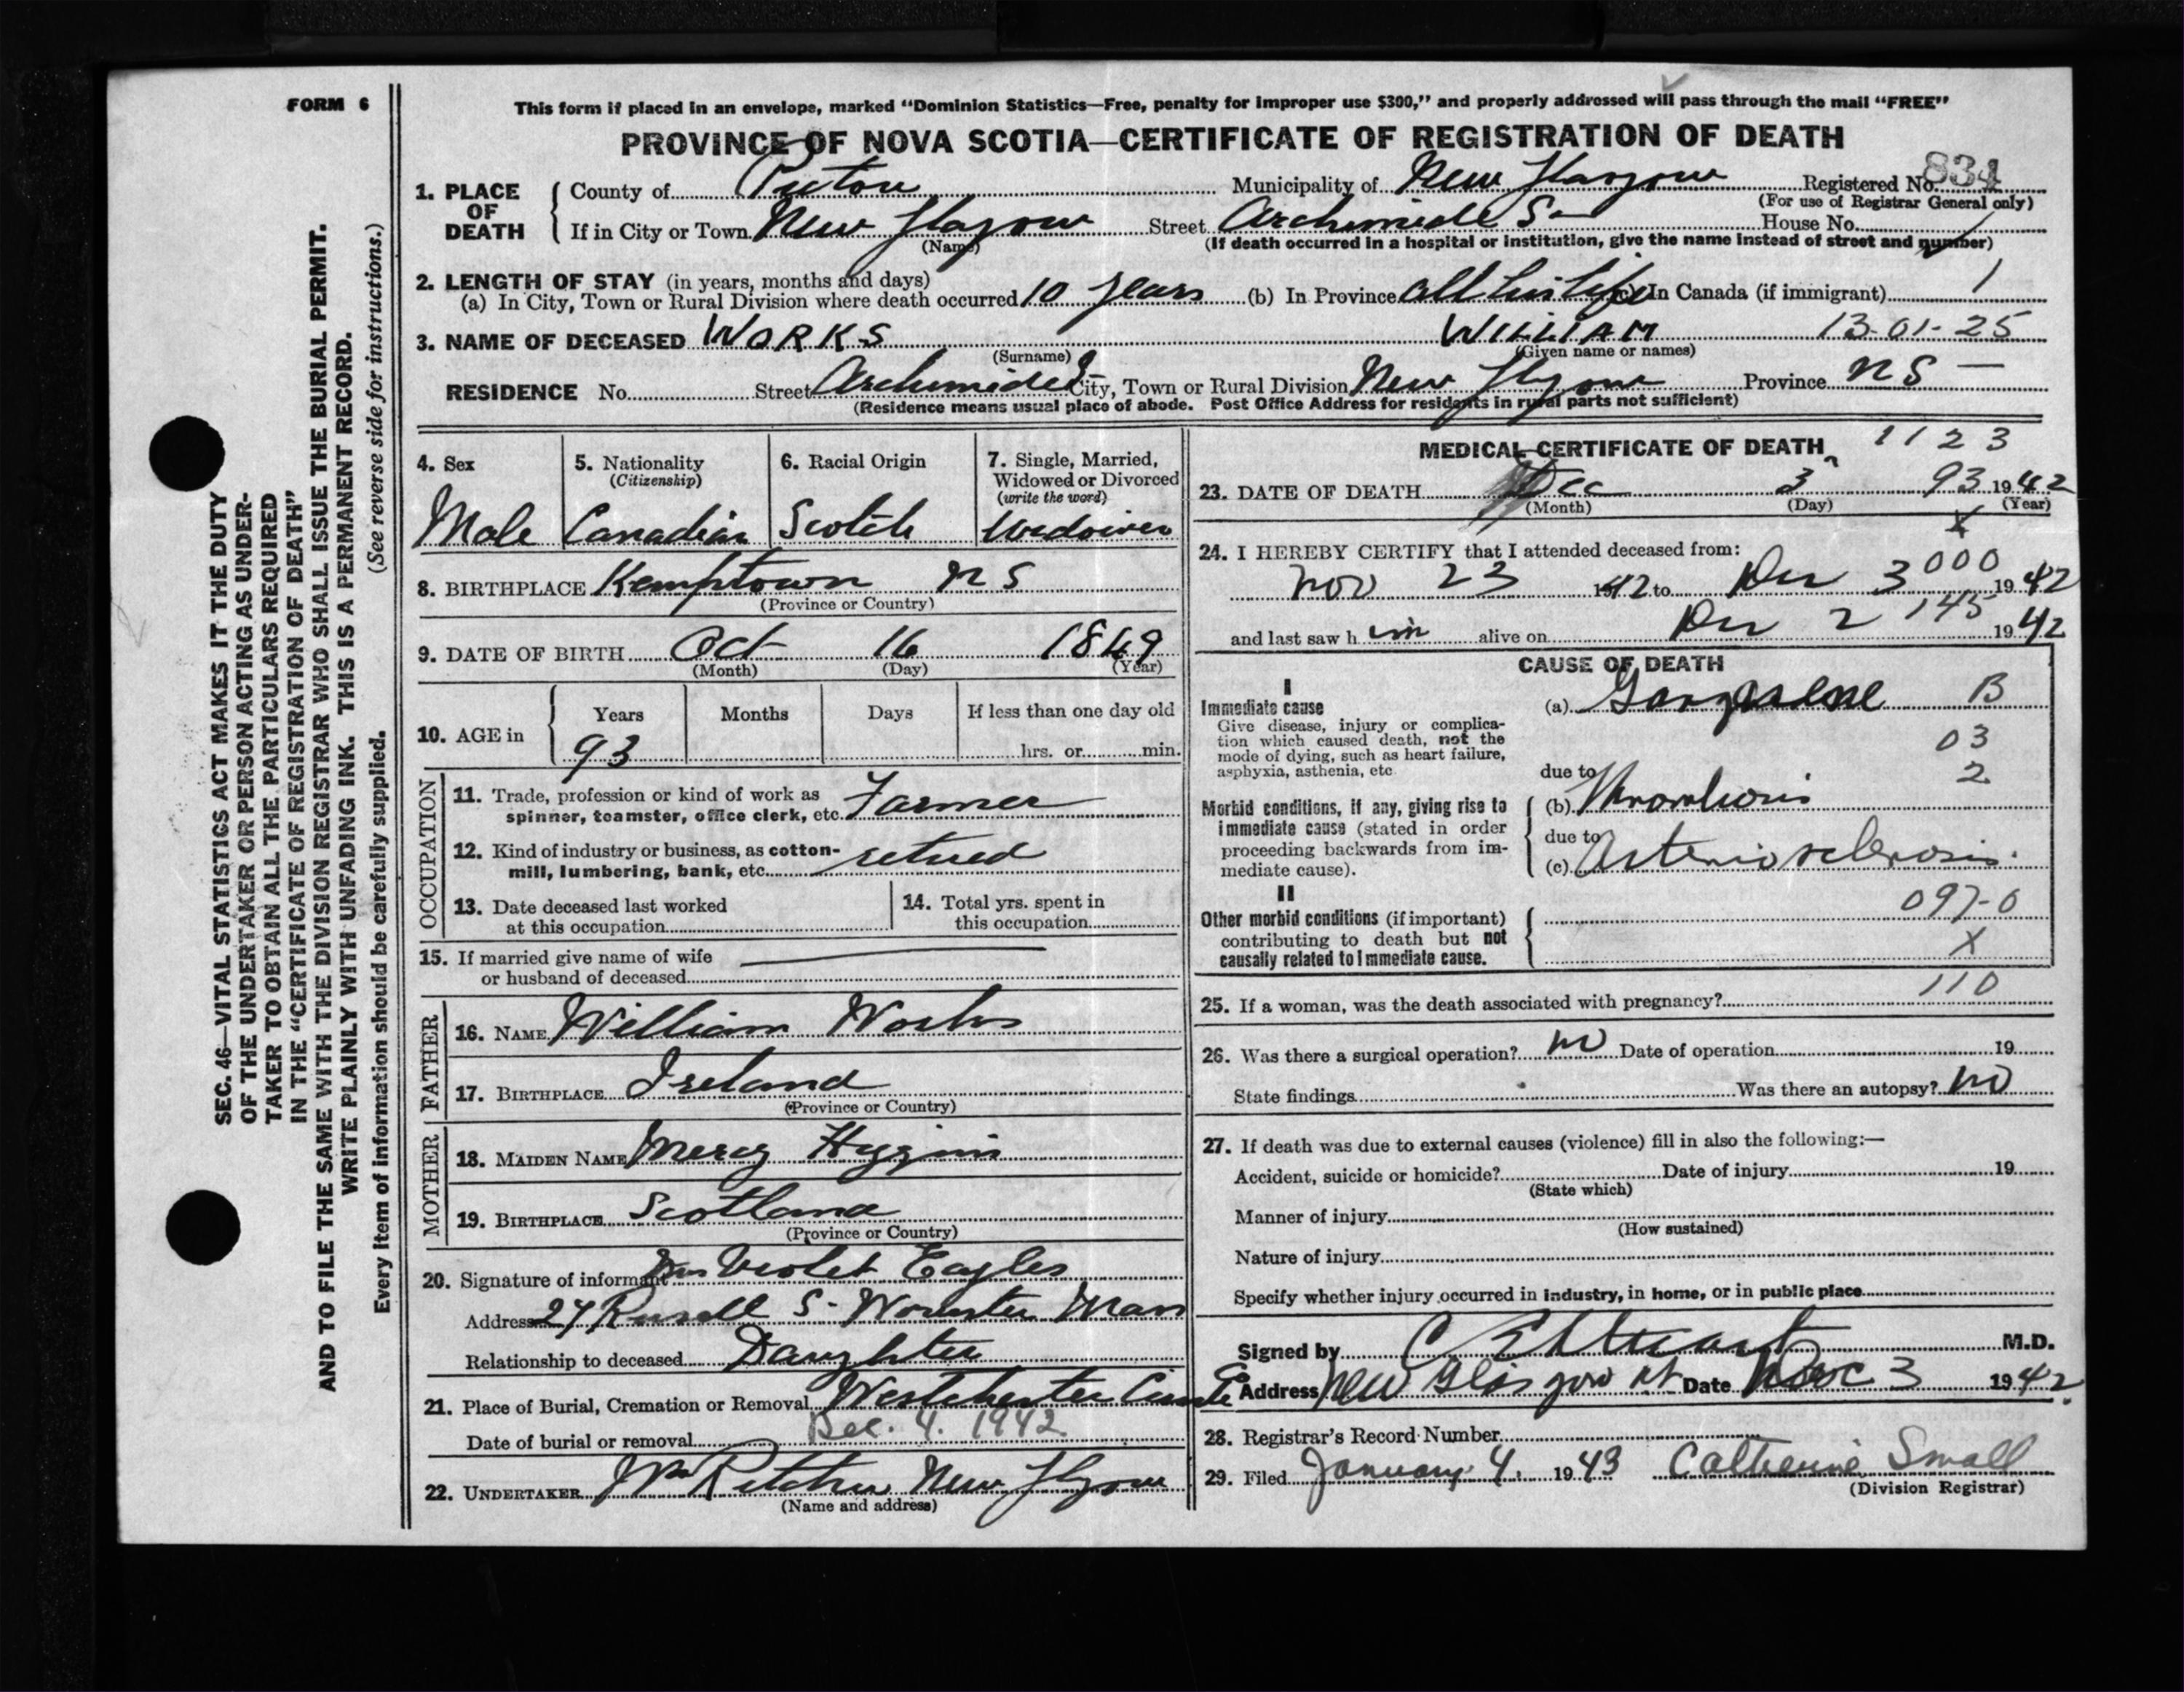 FORM 6
This form if placed in an envelope, marked “Dominion Statistics—Free, penalty for improper use $300,” and properly addressed will pass through the mail “FREE”
PROVINCE OF NOVA SCOTIA—CERTIFICATE OF REGISTRATION OF DEATH
SEC. 46—VITAL STATISTICS ACT MAKES IT THE DUTY
OF THE UNDERTAKER OR PERSON ACTING AS UNDER-
TAKER TO OBTAIN ALL THE PARTICULARS REQUIRED
IN THE “CERTIFICATE OF REGISTRATION OF DEATH”
AND TO FILE THE SAME WITH THE DIVISION REGISTRAR WHO SHALL ISSUE THE BURIAL PERMIT.
WRITE PLAINLY WITH UNFADING INK. THIS IS A PERMANENT RECORD.
(See reverse side for instructions.)
Every item of information should be carefully supplied.
1. PLACE OF DEATH
County of Pictou Municipality of New Glasgow Registered No. 834
(For use of Registrar General only)
If in City or Town New Glasgow Street Archimide S- House No.
(Name)
(If death occurred in a hospital or institution, give the name instead of street and number)
2. LENGTH OF STAY (in years, months and days)
(a) In City, Town or Rural Division where death occurred 10 years (b) In Province all his life (c) In Canada (if immigrant) 1
3. NAME OF DECEASED WORKS WILLIAM 13-01-25
(Surname) (Given name or names)
RESIDENCE No. Street Archimide S- City, Town or Rural Division New Glgow Province NS —
(Residence means usual place of abode. Post Office Address for residents in rural parts not sufficient)
4. Sex
Male
5. Nationality
(Citizenship)
Canadian
6. Racial Origin
Scotch
7. Single, Married,
Widowed or Divorced
(write the word)
Widower
8. BIRTHPLACE Kemptown NS
(Province or Country)
9. DATE OF BIRTH Oct 16 1849
(Month) (Day) (Year)
10. AGE in
Years Months Days If less than one day old
93 hrs. or min.
OCCUPATION
11. Trade, profession or kind of work as
spinner, teamster, office clerk, etc. Farmer
12. Kind of industry or business, as cotton-
mill, lumbering, bank, etc. retired
13. Date deceased last worked
at this occupation
14. Total yrs. spent in
this occupation
15. If married give name of wife
or husband of deceased
FATHER
16. NAME William Works
17. BIRTHPLACE Ireland
(Province or Country)
MOTHER
18. MAIDEN NAME Mercy Higgins
19. BIRTHPLACE Scotland
(Province or Country)
20. Signature of informant Mrs Violet Eagles
Address 27 Russell S- Worcester Mass
Relationship to deceased Daughter
21. Place of Burial, Cremation or Removal Westchester
Date of burial or removal Dec. 4. 1942.
22. UNDERTAKER New Glgow
(Name and address)
MEDICAL CERTIFICATE OF DEATH 1123
23. DATE OF DEATH Dec 3 93 1942
(Month) (Day) (Year)
X
24. I HEREBY CERTIFY that I attended deceased from:
000
Nov 23 1942 to Dec 3 1942
and last saw him alive on Dec 2 145 1942
CAUSE OF DEATH
I
Immediate cause
Give disease, injury or complica-
tion which caused death, not the
mode of dying, such as heart failure,
asphyxia, asthenia, etc
(a) Gangrene B
03
due to 2
Morbid conditions, if any, giving rise to
immediate cause (stated in order
proceeding backwards from im-
mediate cause).
(b) Thrombosis
due to
(c) Arteriosclerosis.
II
Other morbid conditions (if important)
contributing to death but not
causally related to immediate cause.
097-0
X
110
25. If a woman, was the death associated with pregnancy?
26. Was there a surgical operation? no Date of operation 19
State findings Was there an autopsy? no
27. If death was due to external causes (violence) fill in also the following:—
Accident, suicide or homicide? Date of injury 19
(State which)
Manner of injury
(How sustained)
Nature of injury
Specify whether injury occurred in industry, in home, or in public place
Signed by M.D.
Address New Glasgow Date Dec 3 1942.
28. Registrar's Record Number
29. Filed January 4, 1943 Catherine Small
(Division Registrar)